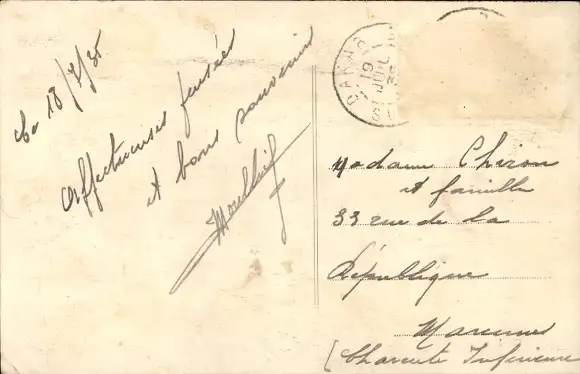 Le 18/7/35
Affectueuses pensées
et bons souvenirs
DAKAR
19
JUIL
35
Madame Chiron
et famille
33 rue de la
République
Marennes
(Charente Inférieure